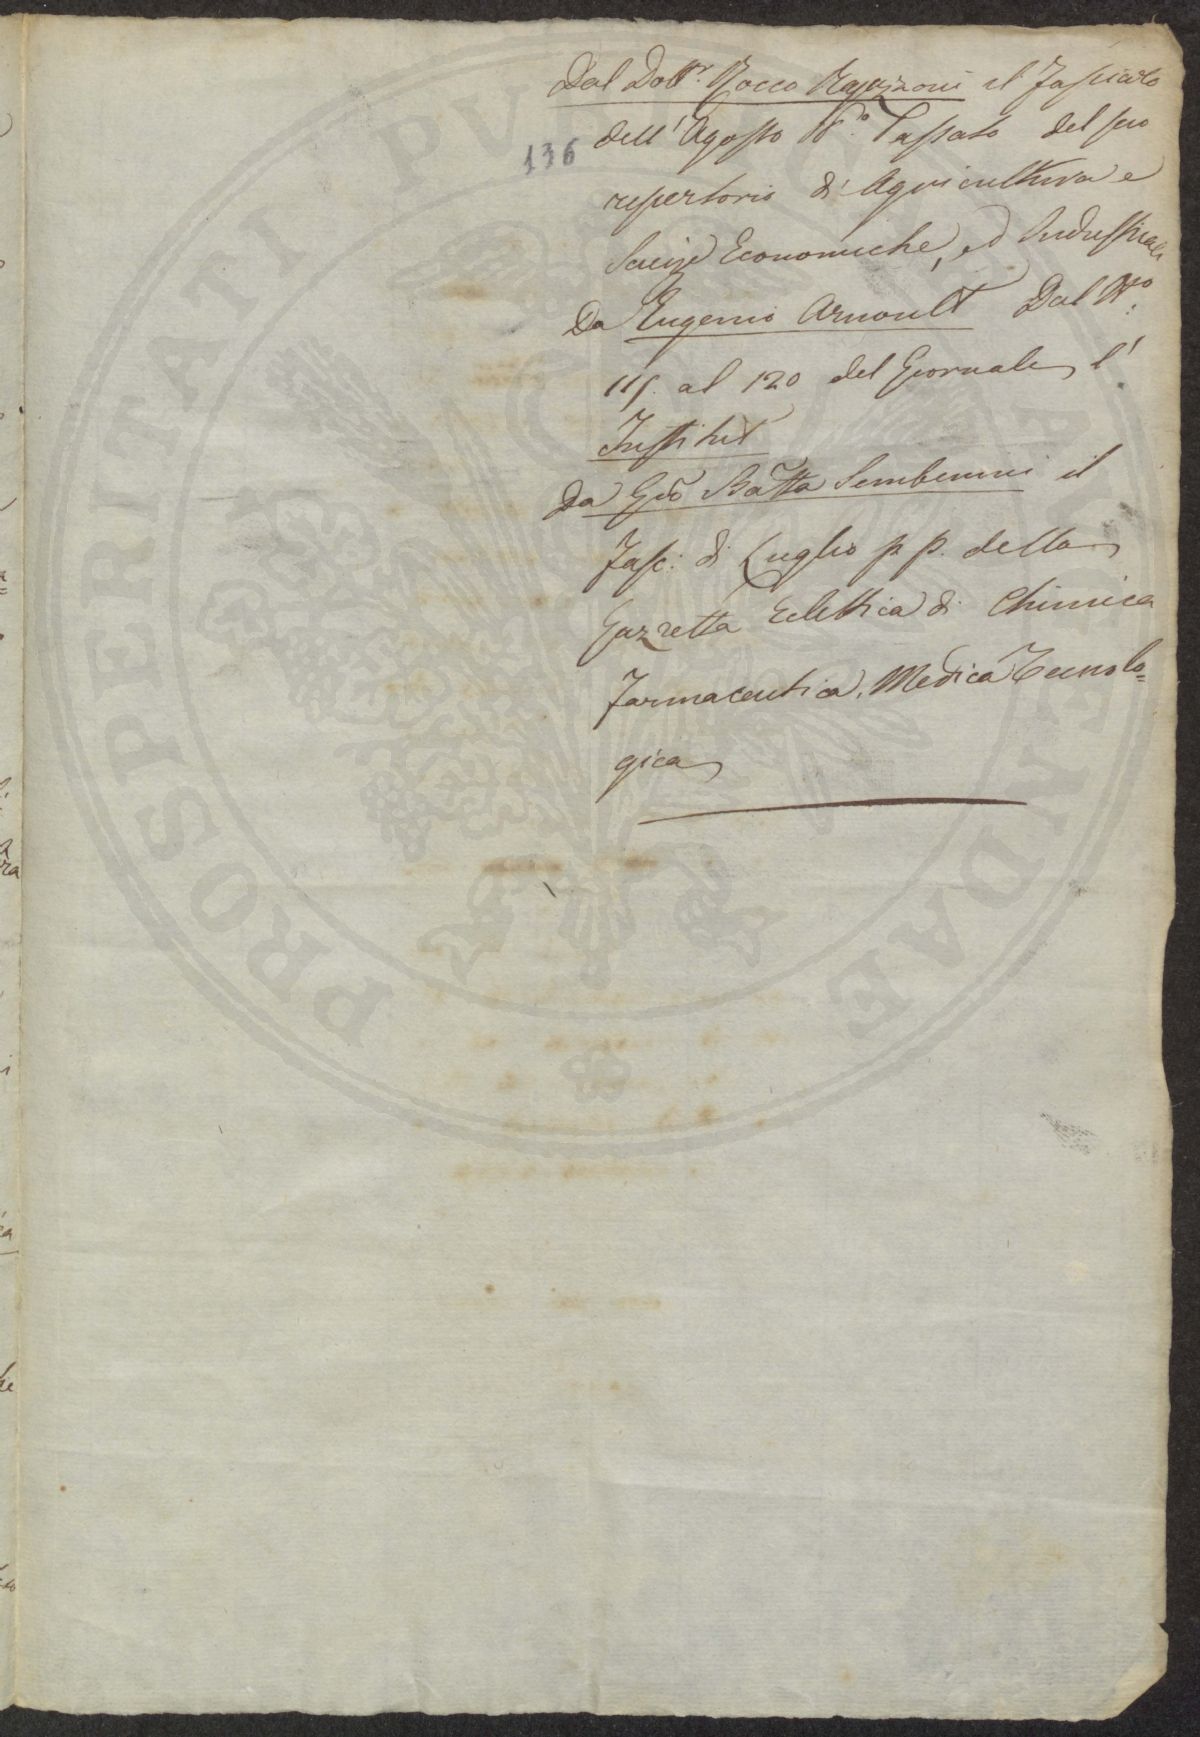 Dal Dott.r Rocco Ragazzoni il Fascicolo
dell'Agosto p.o Passato del suo
136
repertorio di Agricultura e
Scienze Economiche, ed Industriali
Da Eugenio Arnoult Dal N.o
115. al 120 del Giornale, l'
Institut
Da Gio Batta Sembenini il
Fasc: di Luglio p. p. della
Gazzetta Eclettica di Chimica
Farmaceutica, Medica Tecnolo=
gica
PROSPERITATI PVBLICAE AVGENDAE